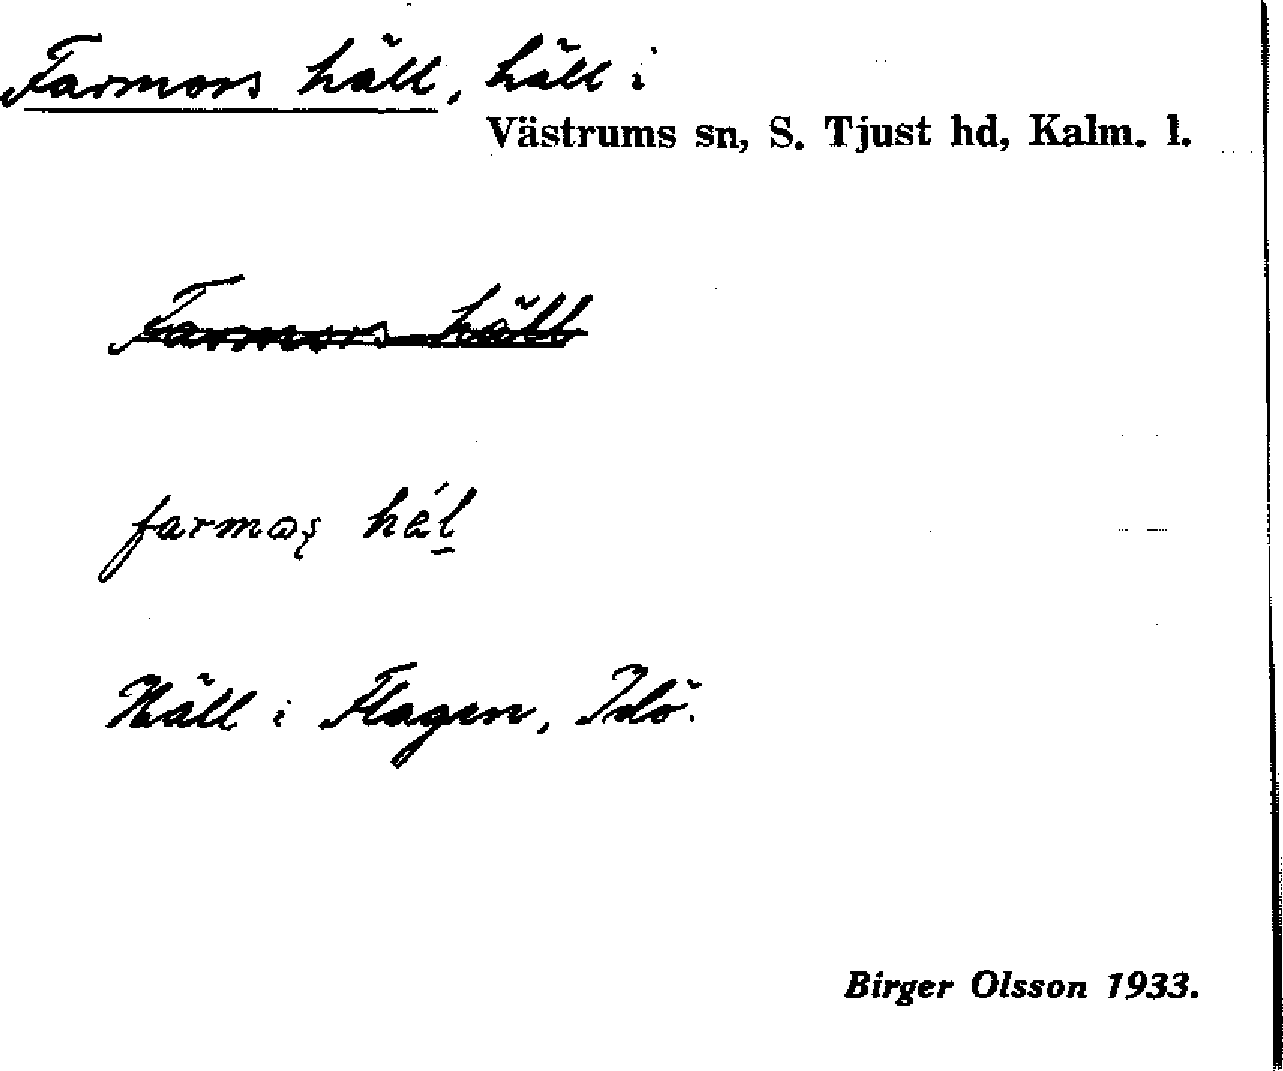 Farmors häll, häll i
Västrums sn, S. Tjust hd, Kalm. l.
Farmors häll
farmoʂ hél̠
Häll i Flagen, Idö.
Birger Olsson 1933.